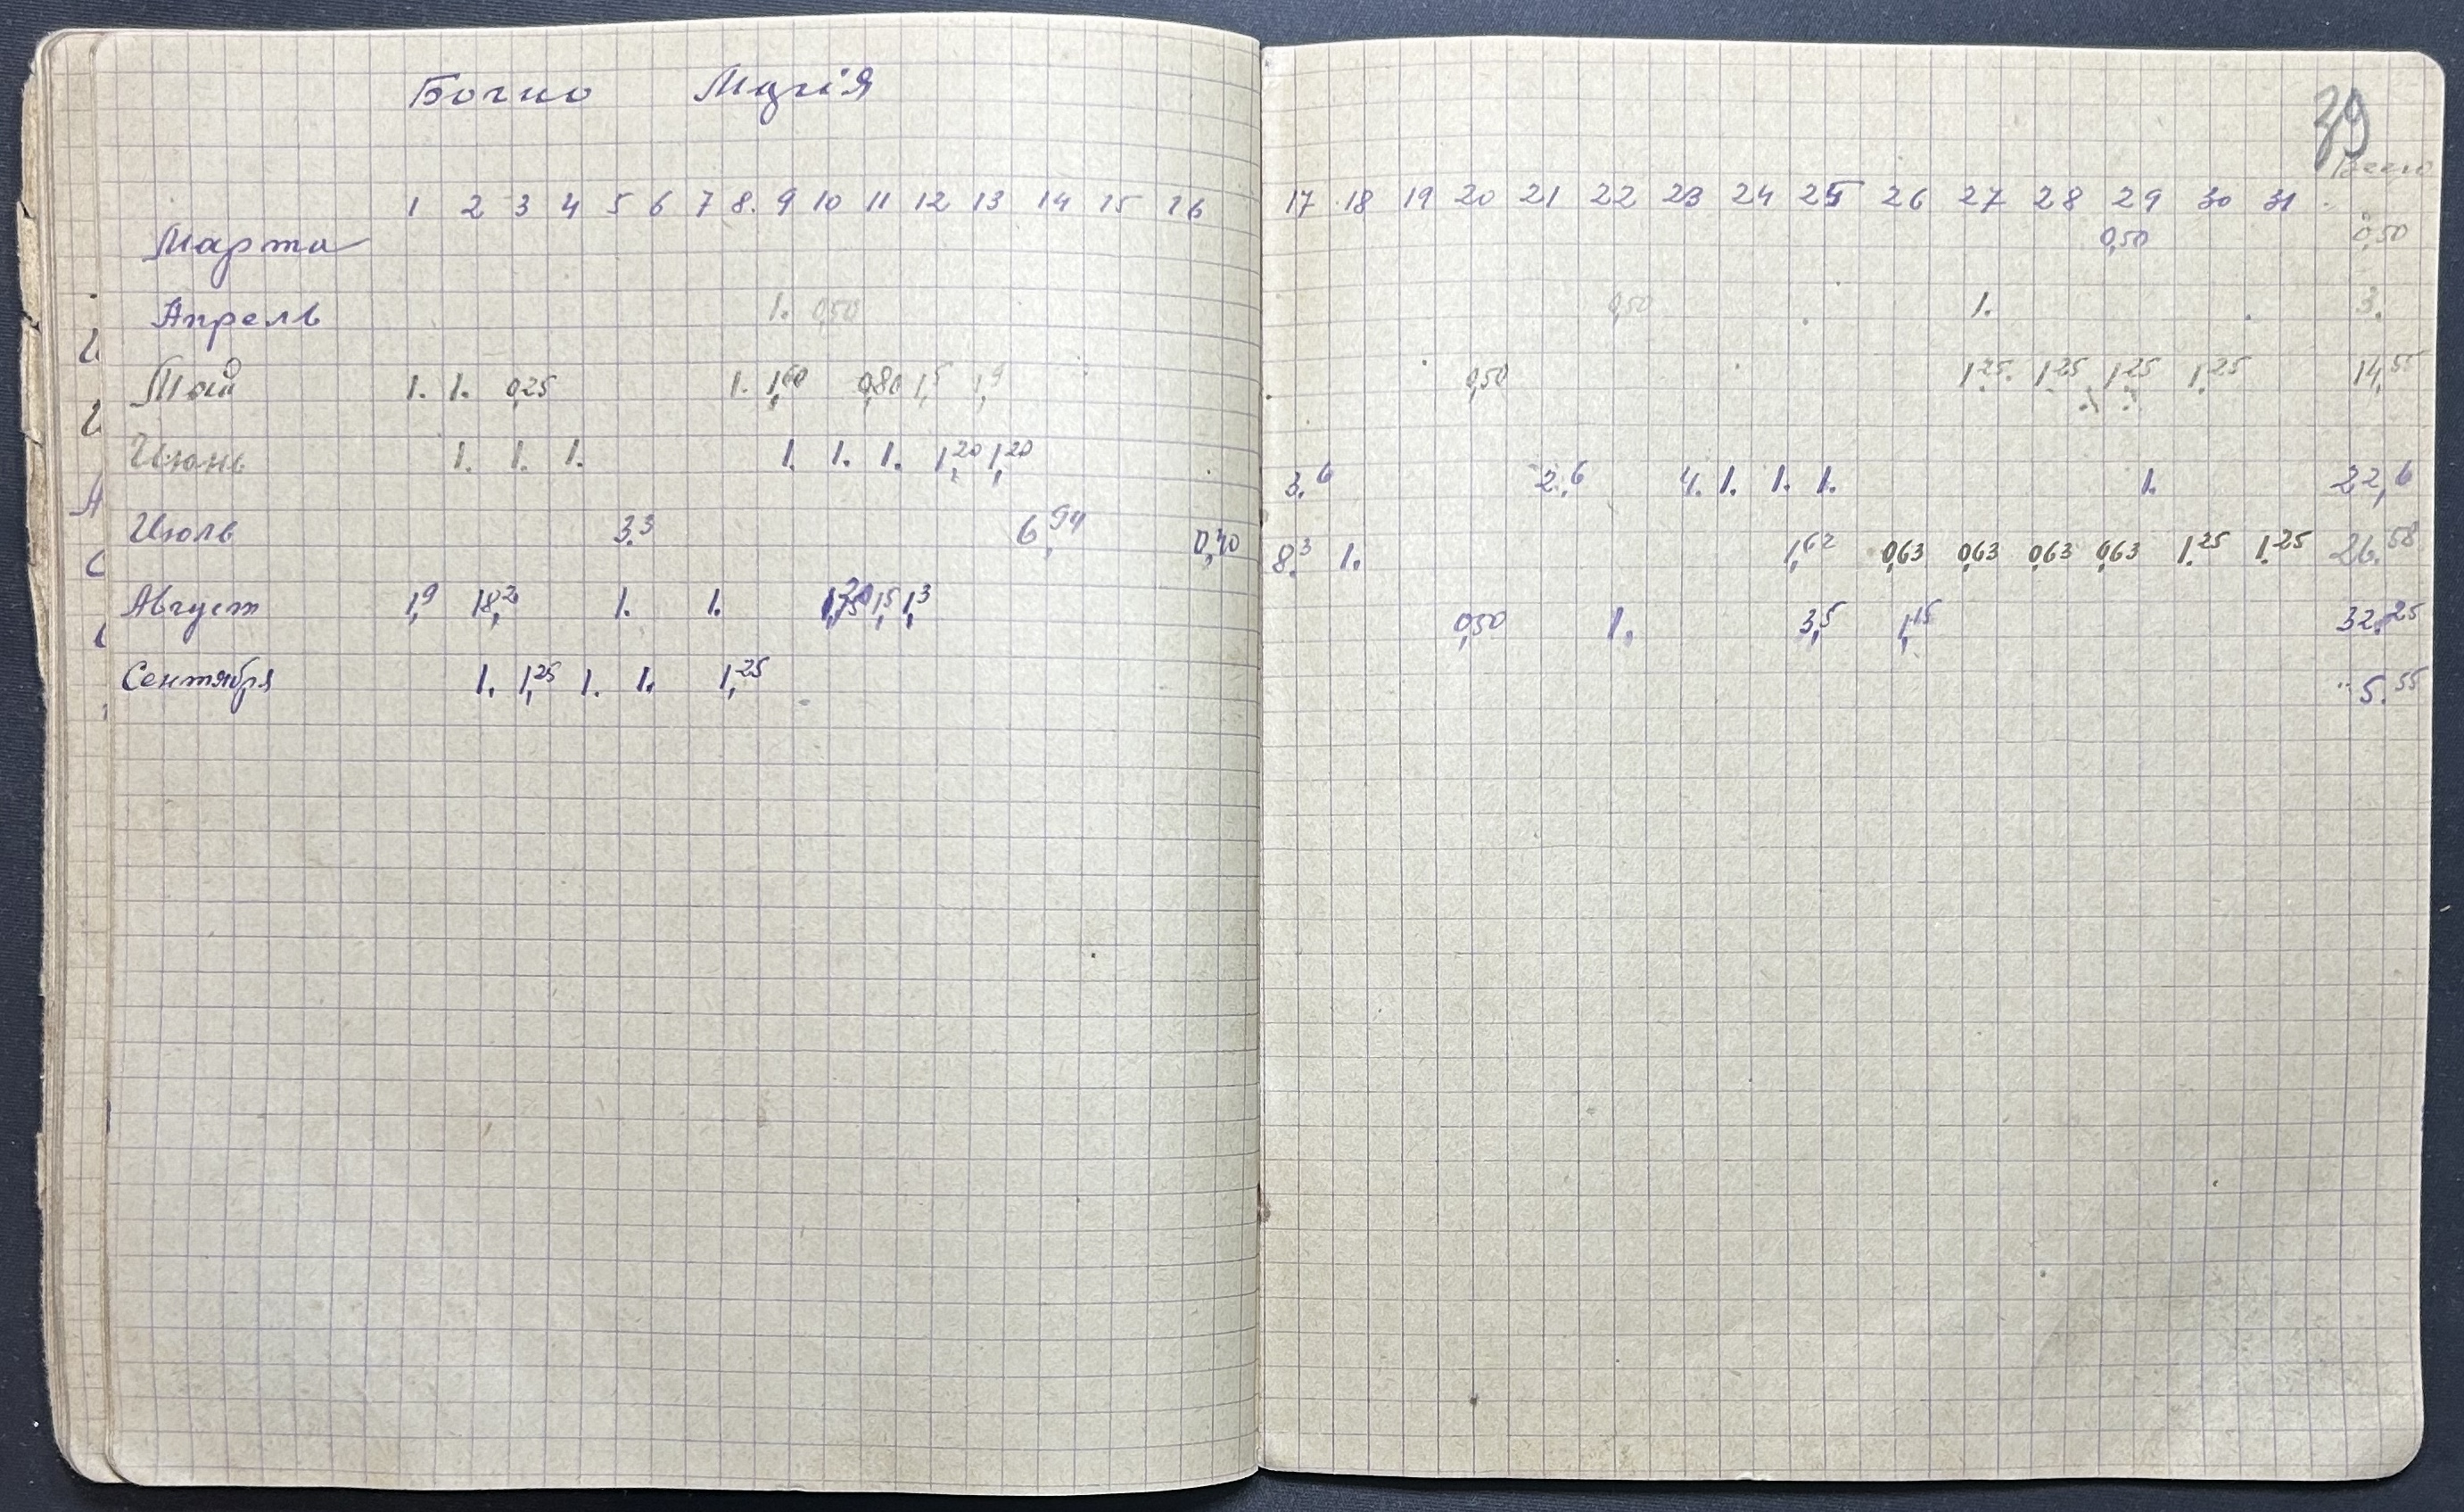 Богно Марія
39
Всего
1 2 3 4 5 6 7 8. 9 10 11 12 13 14 15 16 17 18 19 20 21 22 23 24 25 26 27 28 29 30 31
Марта 0,50 0,50
Апрель 1. 0,50 0,50 1. 3.
Май 1. 1. 0,25 1. 1,60 0,80 1,5 1,9 0,50 1,25. 1,25 1,25 1,25 14,55
Июнь 1. 1. 1. 1. 1. 1. 1,20 1,20 3.6 2.6 4. 1. 1. 1. 1. 22,6
Июль 3.3 6,94 0,40 8.3 1. 1,62 0,63 0,63 0,63 0,63 1.25 1.25 26.58
Август 1,9 18,2 1. 1. 1,5 1,3 0,50 1. 3,5 1,15 32.25
Сентября 1. 1,25 1. 1. 1,25 5.55